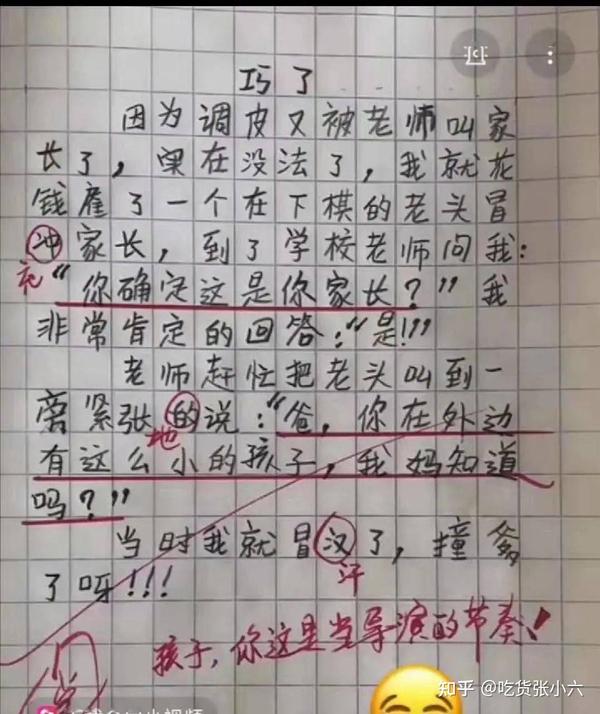 巧了
因为调皮又被老师叫家
长了，实在没法了，我就花
钱雇了一个在下棋的老头冒
冲家长，到了学校老师问我：
充
“你确定这是你家长？”我
非常肯定的回答：“是!!!”
老师赶忙把老头叫到一
旁紧张的说：“爸，你在外边
地
有这么小的孩子，我妈知道
吗？”
当时我就冒汉了，撞爹
汗
了呀!!!
孩子，你这是当导演的节奏！
知乎 @吃货张小六